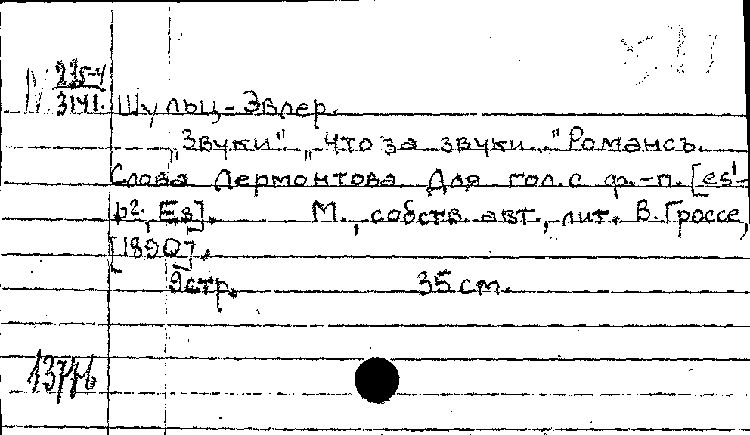 IV 235-4
3141. Шульц-Эвлер.
„Звуки" „Что за звуки..." Романсъ.
Слова Лермонтова. Для гол. с ф.-п. [es¹-
b², Es]. М., собств. авт., лит. В. Гроссе,
[1890].
9 стр. 35 см.